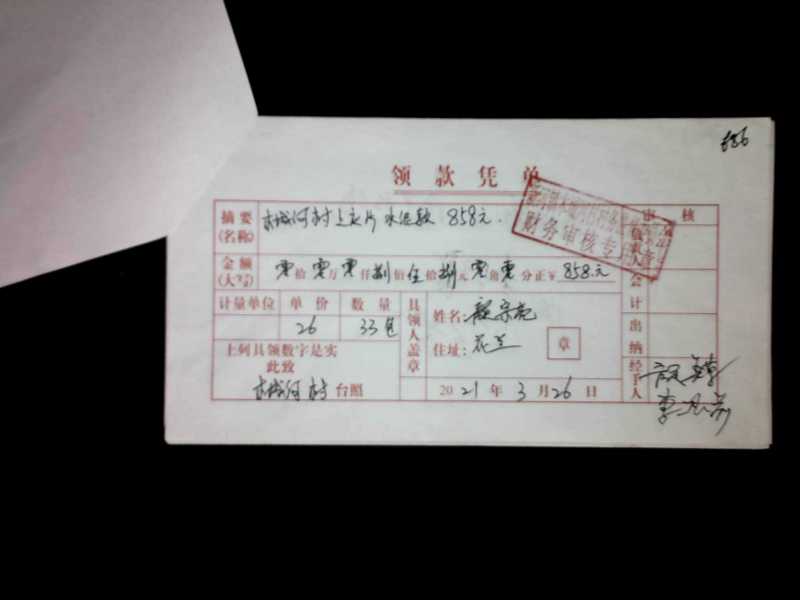 686
领款凭单
摘要(名称) 木城河村上衣片水泥款 858元. 审核
财务审核专
负责人
金额(大写) 零拾零万零仟捌佰伍拾捌元零角零分正¥858.元
会计
计量单位 单价 数量
26 33包
具领人盖章
姓名:
住址: 花兰 章
出纳
上列具领数字是实
此致
木城河村台照
2021年3月26日
经手人